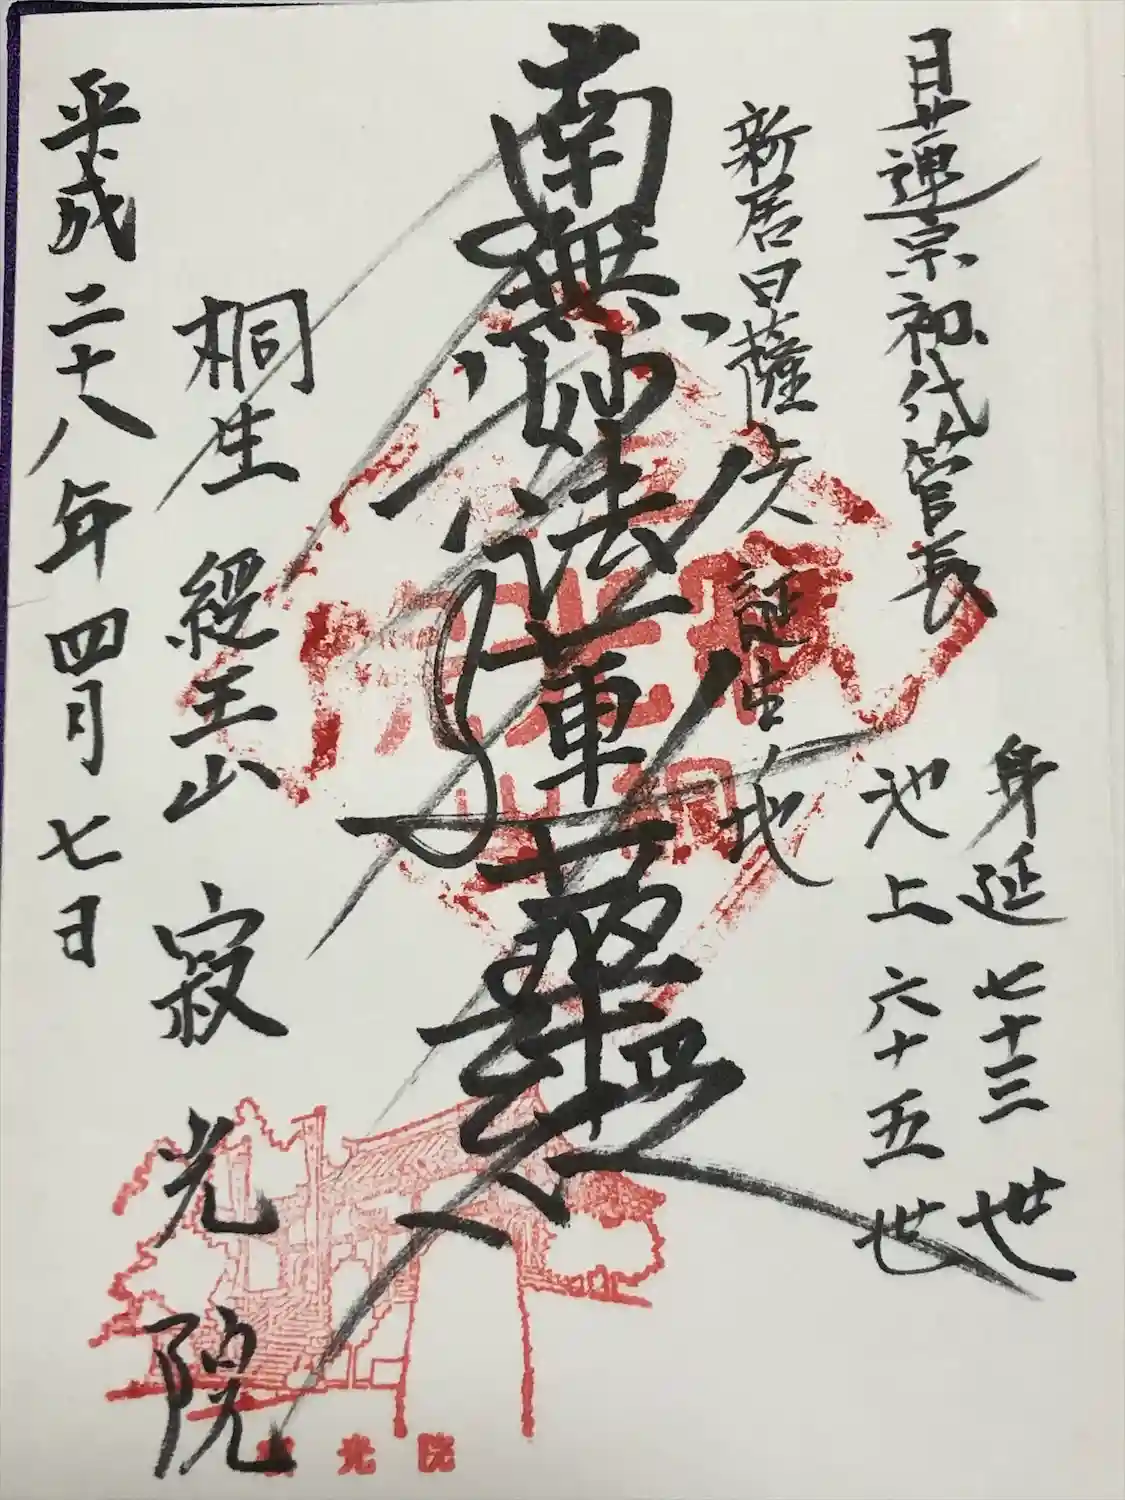 日蓮宗初代管長
身延七十三世
池上六十五世
新居日薩
誕生地
南無妙法蓮華経
桐生 經王山 寂光院
平成二十八年四月七日
光院